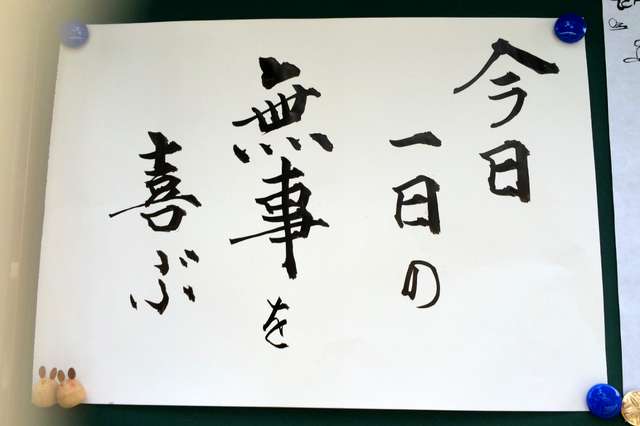 今日
一日の
無事を
喜ぶ